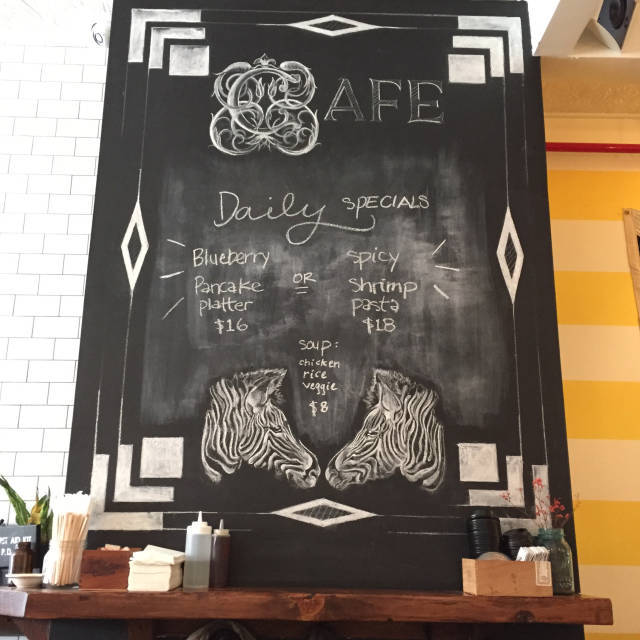 CAFE
Daily SPECIALS
Blueberry
Pancake
platter
$16
OR
spicy
shrimp
pasta
$18
soup:
chicken
rice
veggie
$8